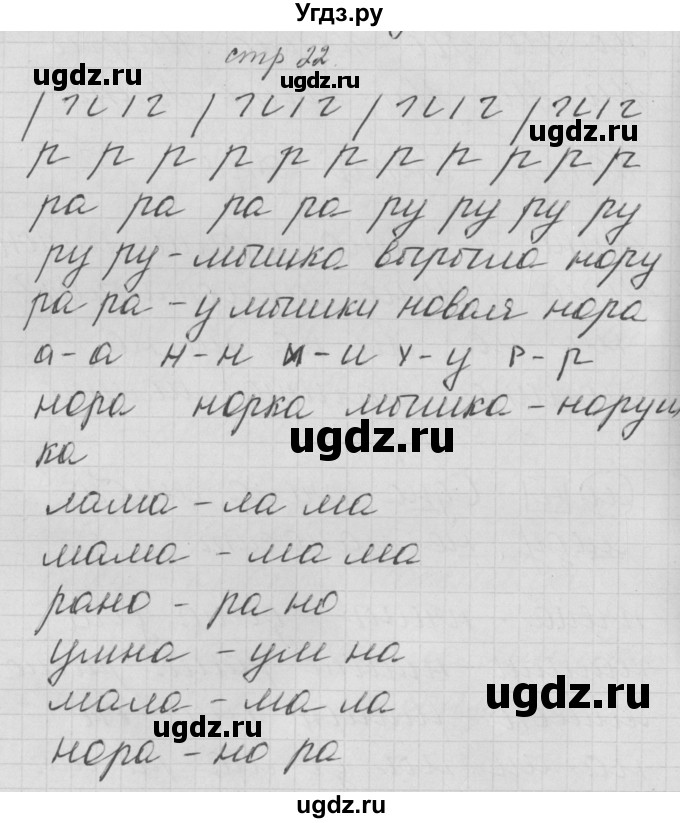 Угдз.ру
стр 22.
ugdz.ru
ugdz.ru
р р р р р р р р р р р
ра ра ра ра ру ру ру ру
ру ру - мышка вырыла нору
ра ра - у мышки новая нора
а - а н - н и - и у - у р - р
нора норка мышка - норуш
ugdz.ru
ка
лама - ла ма
мама - ма ма
рано - ра но
умна - ум на
мала - ма ла
ugdz.ru
ugdz.ru
нора - но ра
ugdz.ru